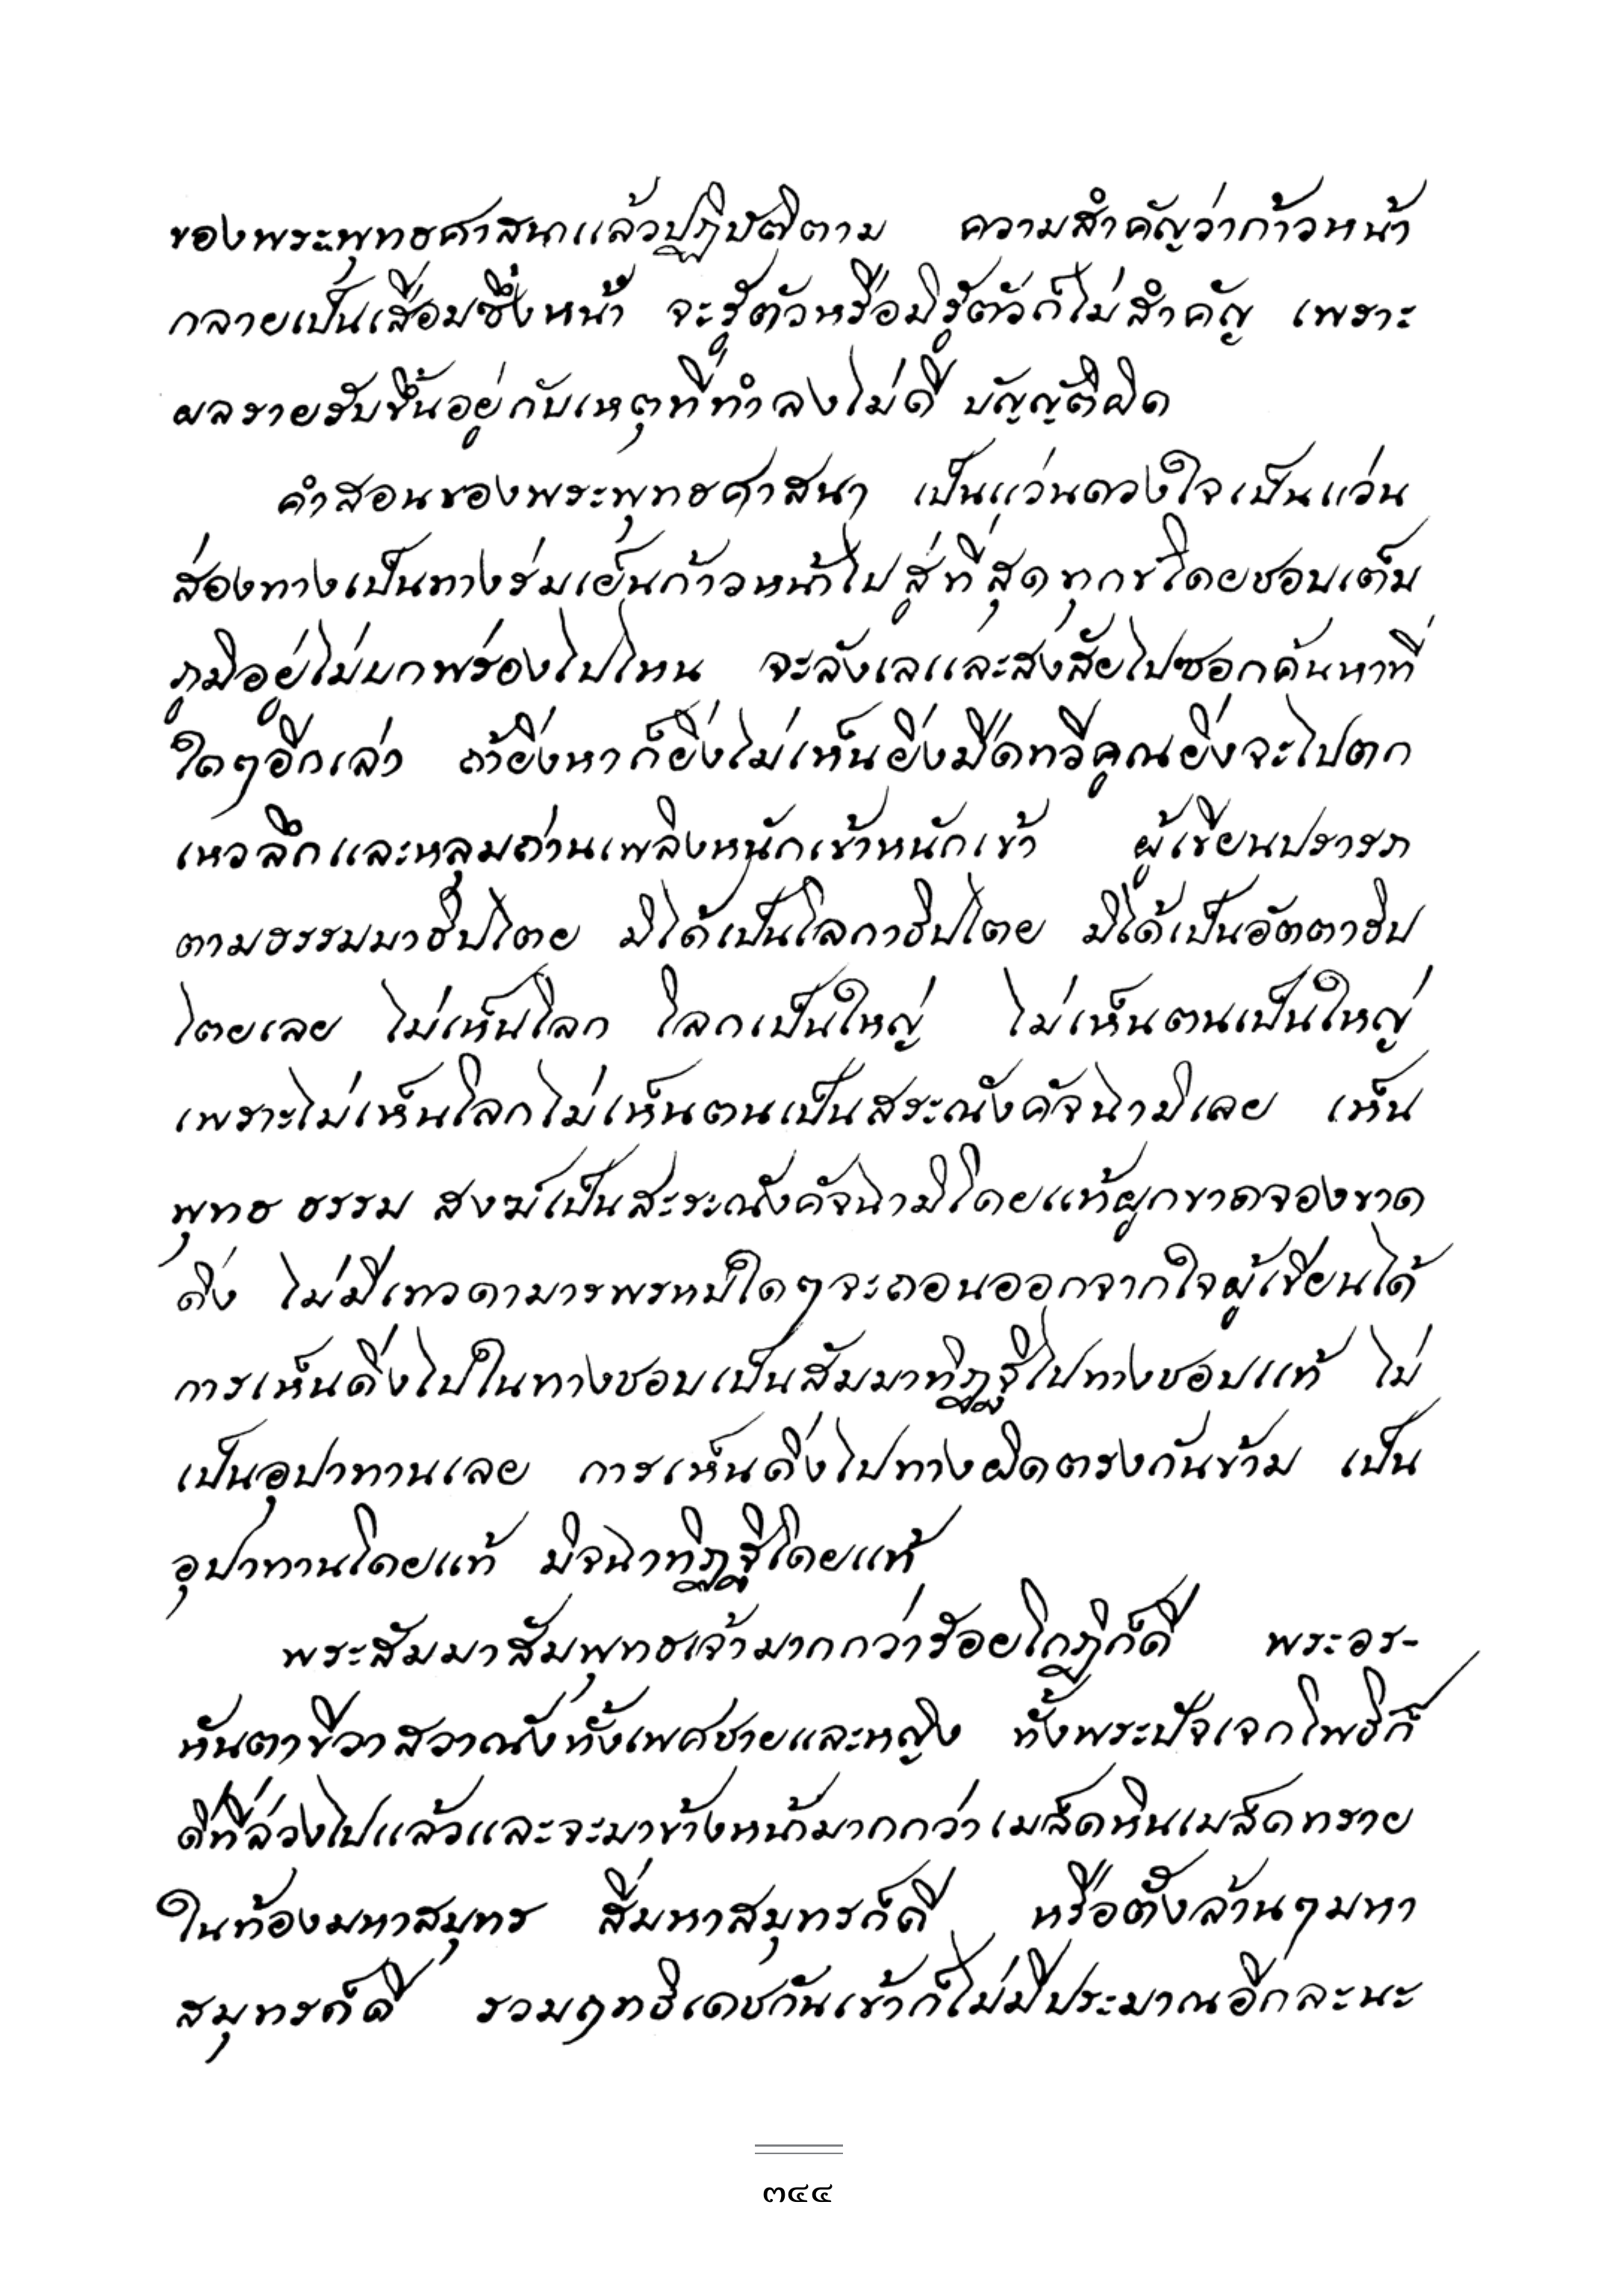 ของพระพุทธศาสนาแล้วปฏิบัติตาม ความสำคัญว่าก้าวหน้า
กลายเป็นเสื่อมซึ่งหน้า จะรู้ตัวหรือมิรู้ตัวก็ไม่สำคัญ เพราะ
ผลรายรับขึ้นอยู่กับเหตุที่ทำลงไม่ดี บัญญัติผิด
คำสอนของพระพุทธศาสนา เป็นแว่นดวงใจเป็นแว่น
ส่องทางเป็นทางร่มเย็นก้าวหน้าไปสู่ที่สุดทุกข์โดยชอบเต็ม
ภูมิอยู่ไม่บกพร่องไปไหน จะลังเลและสงสัยไปซอกค้นหาที่
ใดๆอีกเล่า ถ้ายิ่งหาก็ยิ่งไม่เห็นยิ่งมืดทวีคูณยิ่งจะไปตก
เหวลึกและหลุมถ่านเพลิงหนักเข้าหนักเข้า ผู้เขียนปรารภ
ตามธรรมมาธิปไตย มิได้เป็นโลกาธิปไตย มิได้เป็นอัตตาธิป
ไตยเลย ไม่เห็นโลก โลกเป็นใหญ่ ไม่เห็นตนเป็นใหญ่
เพราะไม่เห็นโลกไม่เห็นตนเป็นสระณังคัจฉามิเลย เห็น
พุทธ ธรรม สงฆ์เป็นสะระณังคัจฉามิโดยแท้ผูกขาดจองขาด
ดิ่ง ไม่มีเทวดามารพรหมใดๆจะถอนออกจากใจผู้เขียนได้
การเห็นดิ่งไปในทางชอบเป็นสัมมาทิฏฐิไปทางชอบแท้ ไม่
เป็นอุปาทานเลย การเห็นดิ่งไปทางผิดตรงกันข้าม เป็น
อุปาทานโดยแท้ มิจฉาทิฏฐิโดยแท้
พระสัมมาสัมพุทธเจ้ามากกว่าร้อยโกฏิก็ดี พระอร-
หันตาขีวาสวาณังทั้งเพศชายและหญิง ทั้งพระปัจเจกโพธิก็
ดีที่ล่วงไปแล้วและจะมาข้างหน้ามากกว่าเมล็ดหินเมล็ดทราย
ในท้องมหาสมุทร สี่มหาสมุทรก็ดี หรือตั้งล้านๆมหา
สมุทรก็ดี รวมฤทธิเดชกันเข้าก็ไม่มีประมาณอีกละนะ
๓๔๔